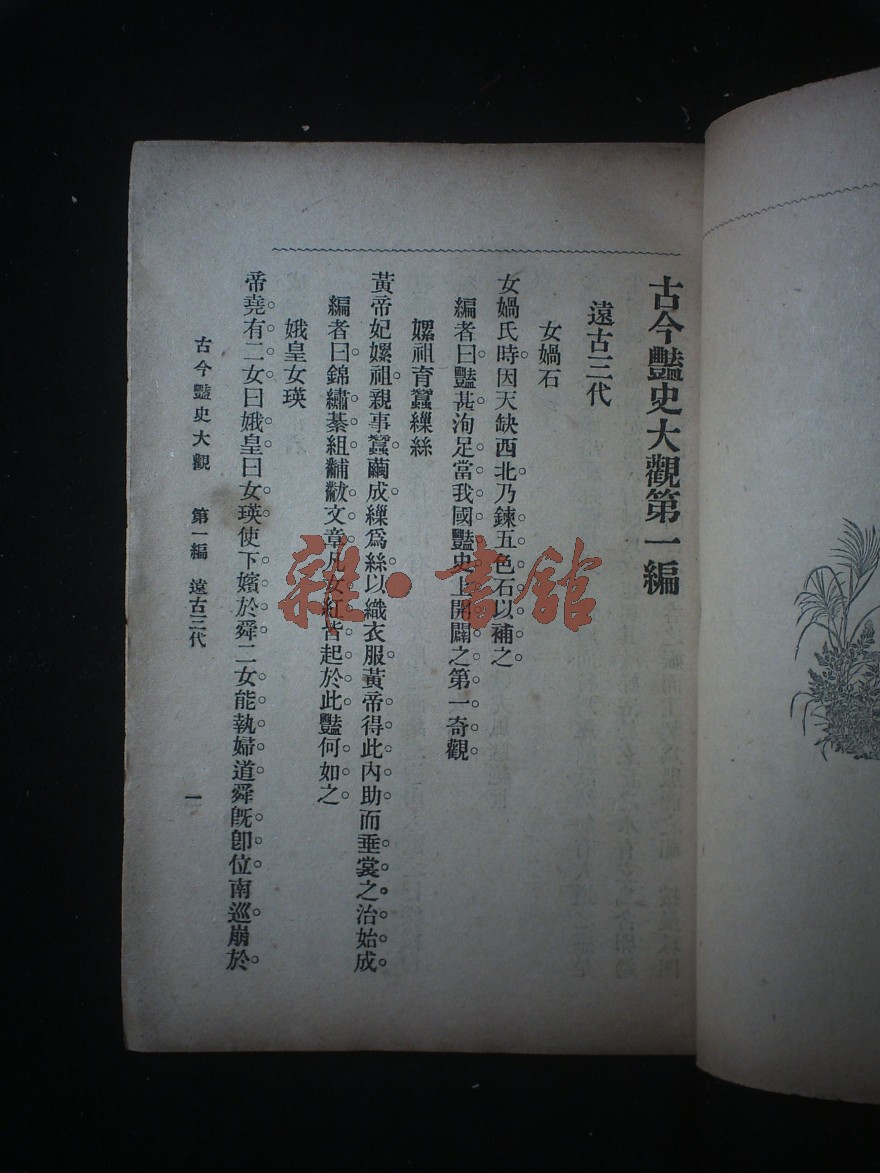 古今豔史大觀第一編
遠古三代
女媧石
女媧氏時因天缺西北乃鍊五色石以補之
編者曰豔甚洵足當我國豔史上開闢之第一奇觀
嫘祖育蠶繅絲
黃帝妃嫘祖親事蠶繭成繅爲絲以織衣服黃帝得此內助而垂裳之治始成
編者曰錦繡綦組黼黻文章凡女紅皆起於此豔何如之
娥皇女瑛
帝堯有二女曰娥皇曰女瑛使下嬪於舜二女能執婦道舜既卽位南巡崩於
古今豔史大觀 第一編 遠古三代 一
雜·書館